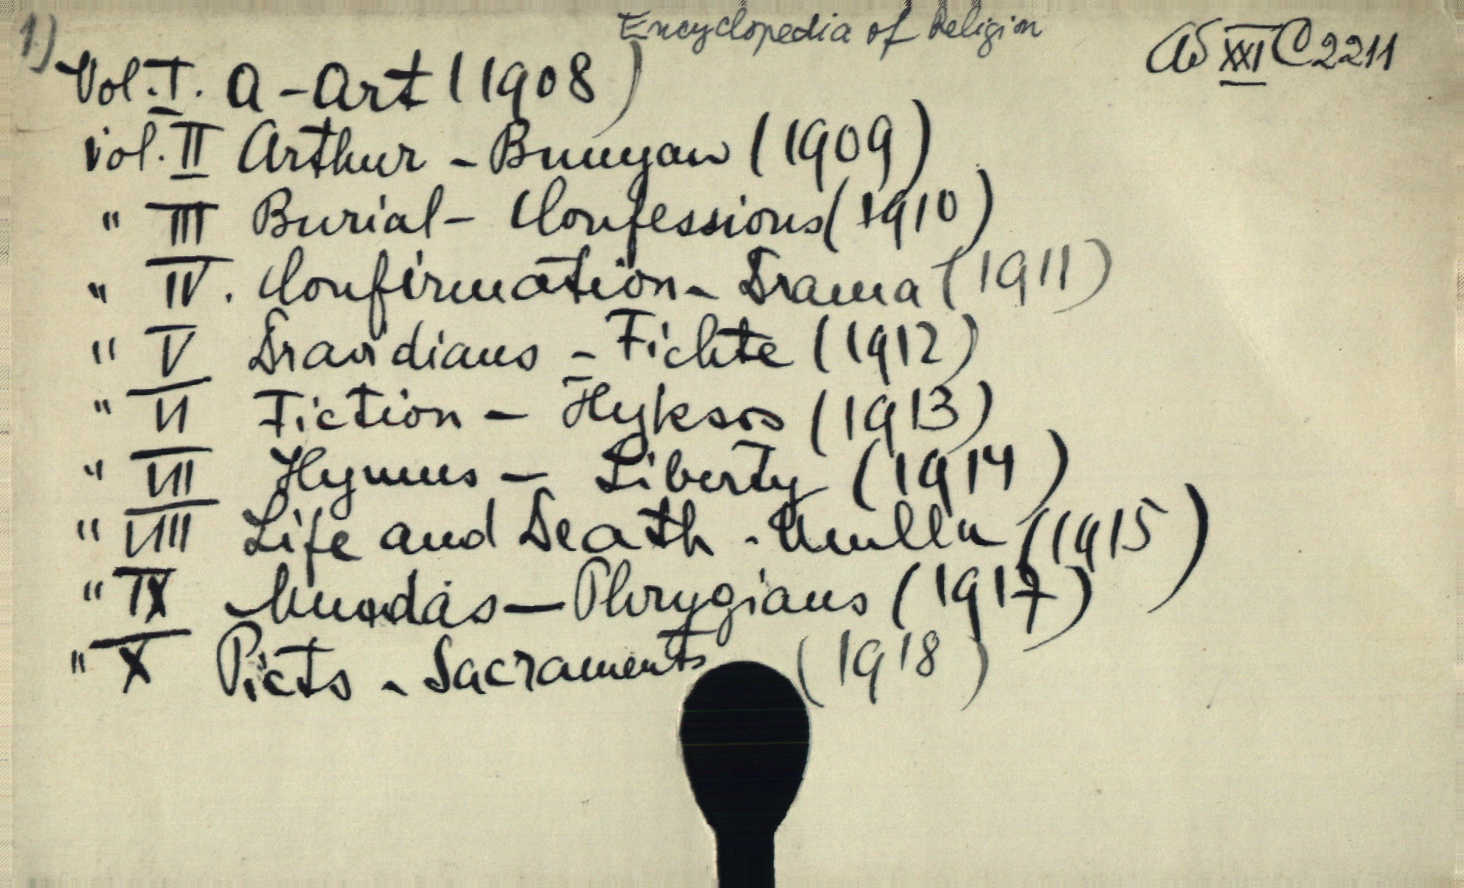 1.) Encyclopedia of Religion
Ab XXI C 2211
Vol. I. A - Art (1908)
Vol. II Arthur - Bunyan (1909)
" III Burial - Confessions (1910)
" IV. Confirmation - Drama (1911)
" V Dravidians - Fichte (1912)
" VI Fiction - Hyksos (1913)
" VII Hymns - Liberty (1914)
" VIII Life and Death - Mulla (1915)
" IX Mundas - Phrygians (1917)
" X Picts - Sacraments (1918)